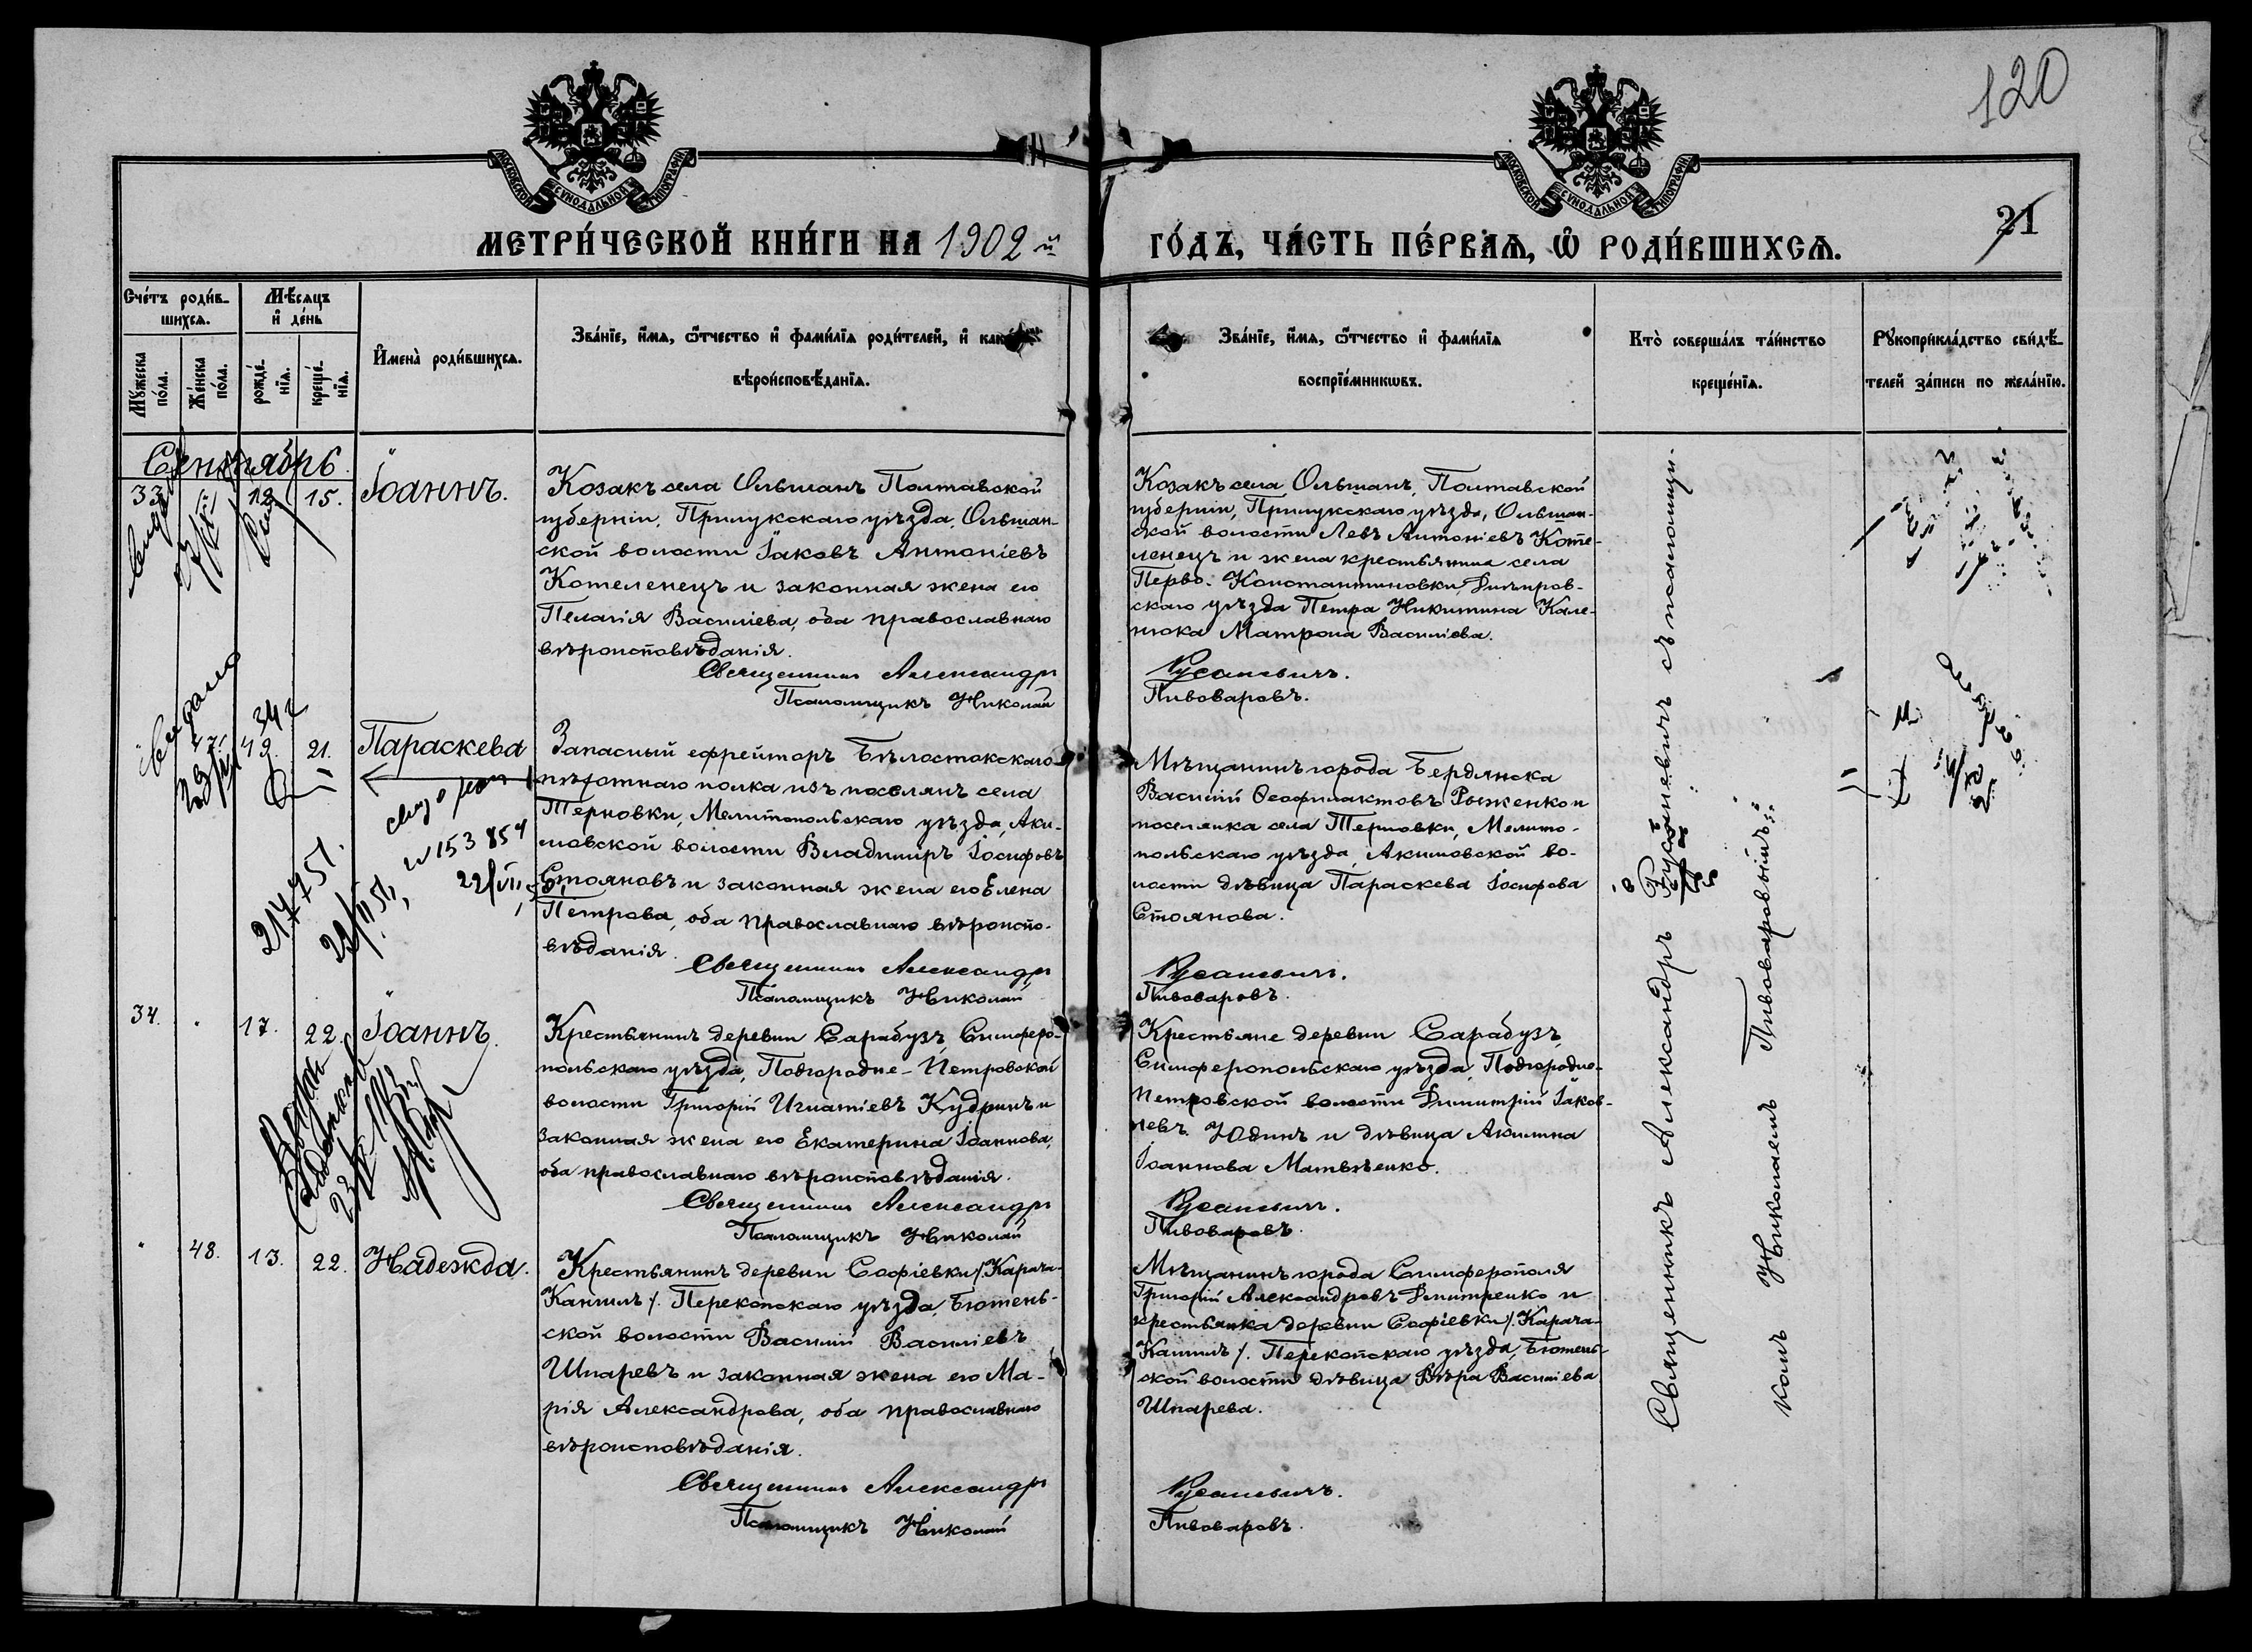 120
МОСКОВСКОЙ СѴНОДАЛЬНОЙ ТИПОГРАФІИ
МОСКОВСКОЙ СѴНОДАЛЬНОЙ ТИПОГРАФІИ
МЕТРИ́ЧЕСКОЙ КНИ́ГИ НА 1902 й
ГО́ДЪ, ЧА́СТЬ ПЕ́РВАѦ, Ѡ РОДИ́ВШИХСѦ.
21
Сче́тъ роди́в-
шихсѧ.
Мѣ́сѧцъ
и҆ де́нь
Мꙋжеска по́ла.
Же́нска по́ла.
рожде́-нїѧ.
креще́-нїѧ.
И҆мена̀ роди́вшихсѧ.
Зва́нїе, и҆́мѧ, ѻ҆́тчество и҆ фами́лїѧ роди́телей, и҆
вѣроисповѣ́данїѧ.
Зва́нїе, и҆́мѧ, ѻ҆́тчество и҆ фами́лїѧ
воспрїе́мникѡвъ.
Кто̀ соверша́лъ та́инство
креще́нїѧ.
Рꙋкоприкла́дство свидѣ́-
телей за́писи по жела́нїю.
Сентябрь
33 12 15. Іоаннъ.
Козакъ села Ольшанъ Полтавской
губерніи, Прилукскаго уѣзда, Ольшан-
ской волости Іаковъ Антоніевъ
Котеленецъ и законная жена его
Пелагія Василіева, оба православнаго
вѣроисповѣданія.
Священникъ Александръ
Псаломщикъ Николай
Козакъ села Ольшанъ, Полтавской
губерніи, Прилукскаго уѣзда, Ольшан-
ской волости Левъ Антоніевъ Коте-
ленецъ и жена крестьянина села
Перво-Константиновки, Днѣпров-
скаго уѣзда Петра Никитина Кале-
нюка Матрона Василіева.
Русаневичъ.
Пивоваровъ.
47. 19. 21. Параскева
Запасный ефрейторъ Бѣлостокскаго
пѣхотнаго полка изъ поселянъ села
Терновки, Мелитопольскаго уѣзда, Аки-
мовской волости Владиміръ Іосифовъ
Стояновъ и законная жена его Елена
Петрова, оба православнаго вѣроиспо-
вѣданія.
Священникъ Александръ
Псаломщикъ Николай
Мѣщанинъ города Бердянска
Василій Ѳеофилактовъ Рыженко и
поселянка села Терновки, Мелито-
польскаго уѣзда, Акимовской во-
лости дѣвица Параскева Іосифова
Стоянова.
Русаневичъ.
Пивоваровъ.
№ 153854
34. " 17. 22. Іоаннъ.
Крестьянинъ деревни Сарабузъ, Симферо-
польскаго уѣзда, Подгородне-Петровской
волости Григорій Игнатіевъ Кудринъ и
законная жена его Екатерина Іоаннова,
оба православнаго вѣроисповѣданія.
Священникъ Александръ
Псаломщикъ Николай
Крестьяне деревни Сарабузъ,
Симферопольскаго уѣзда, Подгородне-
Петровской волости Димитрій Іаков-
левъ Юдинъ и дѣвица Акилина
Іоаннова Матвѣенко.
Русаневичъ.
Пивоваровъ.
" 48. 13. 22. Надежда.
Крестьянинъ деревни Софіевки /Карача-
Кангилъ/. Перекопскаго уѣзда, Бютень-
ской волости Василій Василіевъ
Шпаревъ и законная жена его Ма-
рія Александрова, оба православнаго
вѣроисповѣданія.
Священникъ Александръ
Псаломщикъ Николай
Мѣщанинъ города Симферополя
Григорій Александровъ Дмитренко и
крестьянка деревни Софіевки /Карача-
Кангилъ/. Перекопскаго уѣзда, Бютень-
ской волости дѣвица Вѣра Василіева
Шпарева.
Русаневичъ.
Пивоваровъ.
Священникъ Александръ Русаневичъ съ псаломщи-
комъ Николаемъ Пивоваровымъ.